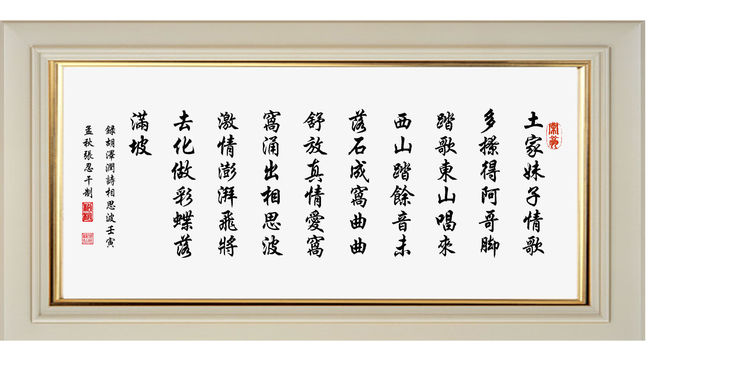 土家妹子情歌
多撩得阿哥脚
踏歌東山唱來
西山踏餘音未
落石成窩曲曲
舒放真情愛窩
窩涌出相思波
激情澎湃飛將
去化做彩蝶落
滿坡
錄胡澤潤詩相思波壬寅
孟秋張忍千制